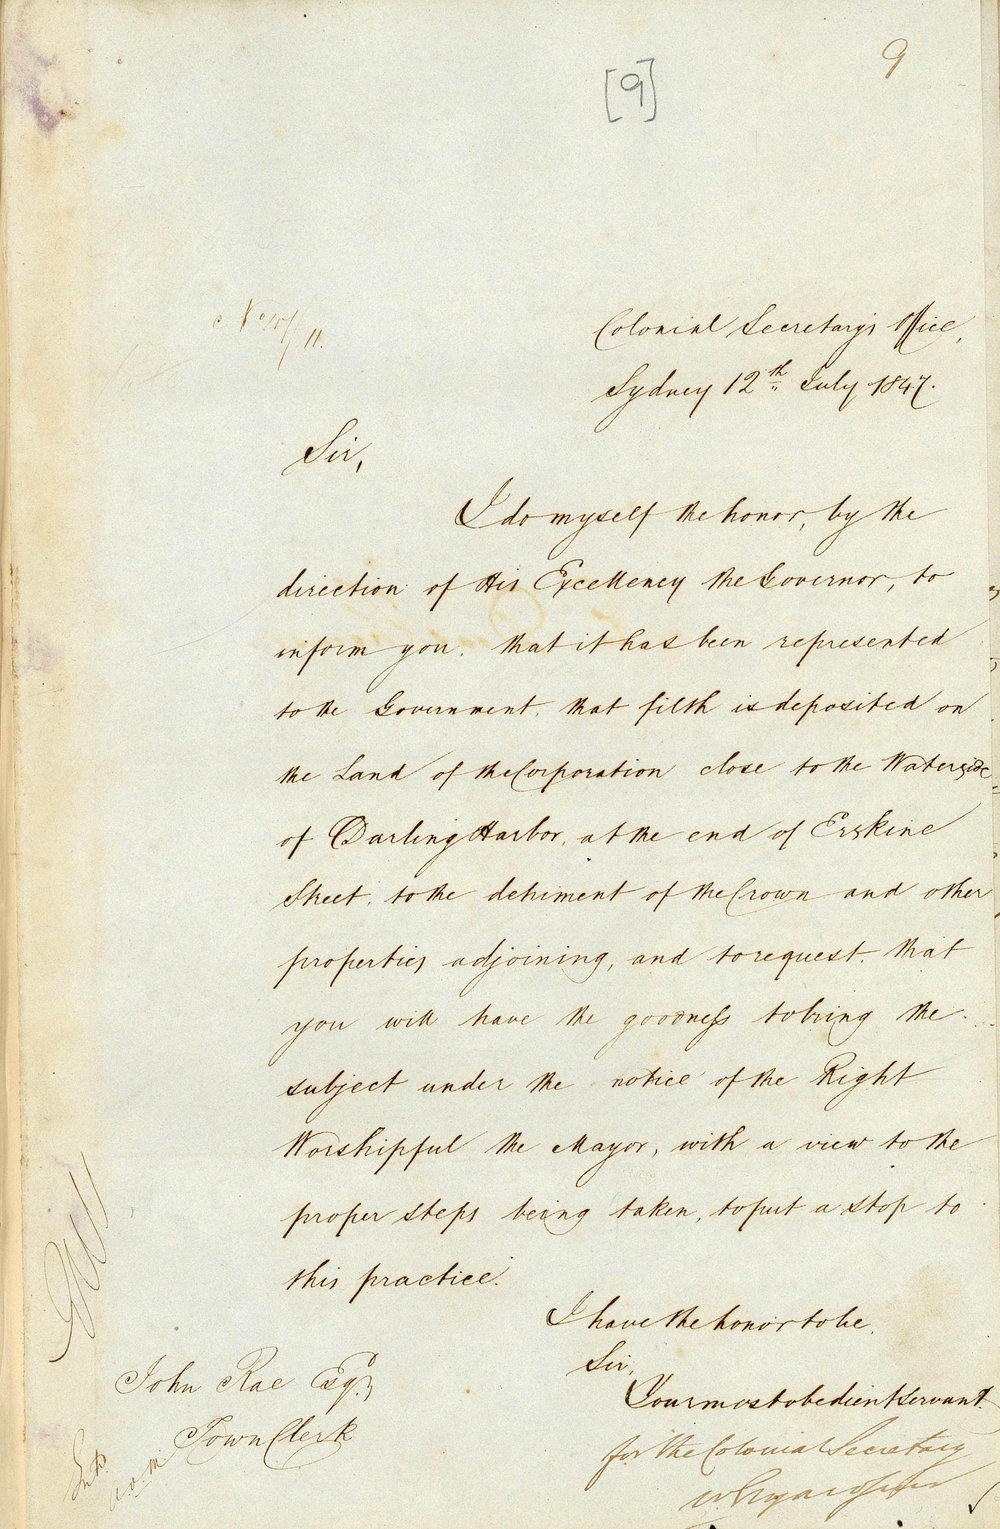 9
[9]
Colonial Secretary's Office,
Sydney 12th July 1847.
Sir,
I do myself the honor, by the
direction of His Excellency the Governor, to
inform you, that it has been represented
to the Government, that filth is deposited on
the Land of the Corporation close to the Waterside
of Darling Harbor, at the end of Erskine
Street, to the detriment of the Crown and other
properties adjoining, and to request that
you will have the goodness to bring the
subject under the notice of the Right
Worshipful the Mayor, with a view to the
proper steps being taken, to put a stop to
this practice.
I have the honor to be,
Sir,
Your most obedient servant
for the Colonial Secretary
John Rae Esqr
Town Clerk